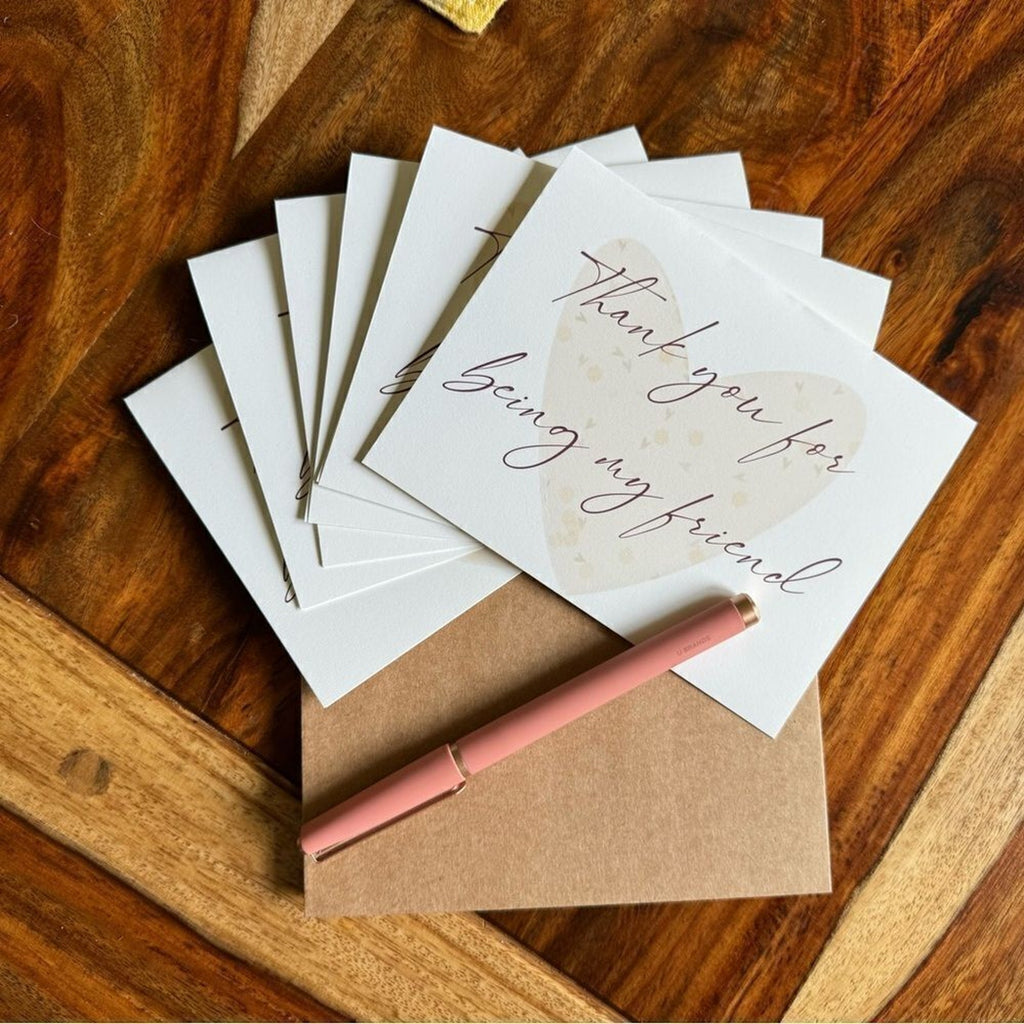 Thank you for
being my friend
U BRANDS